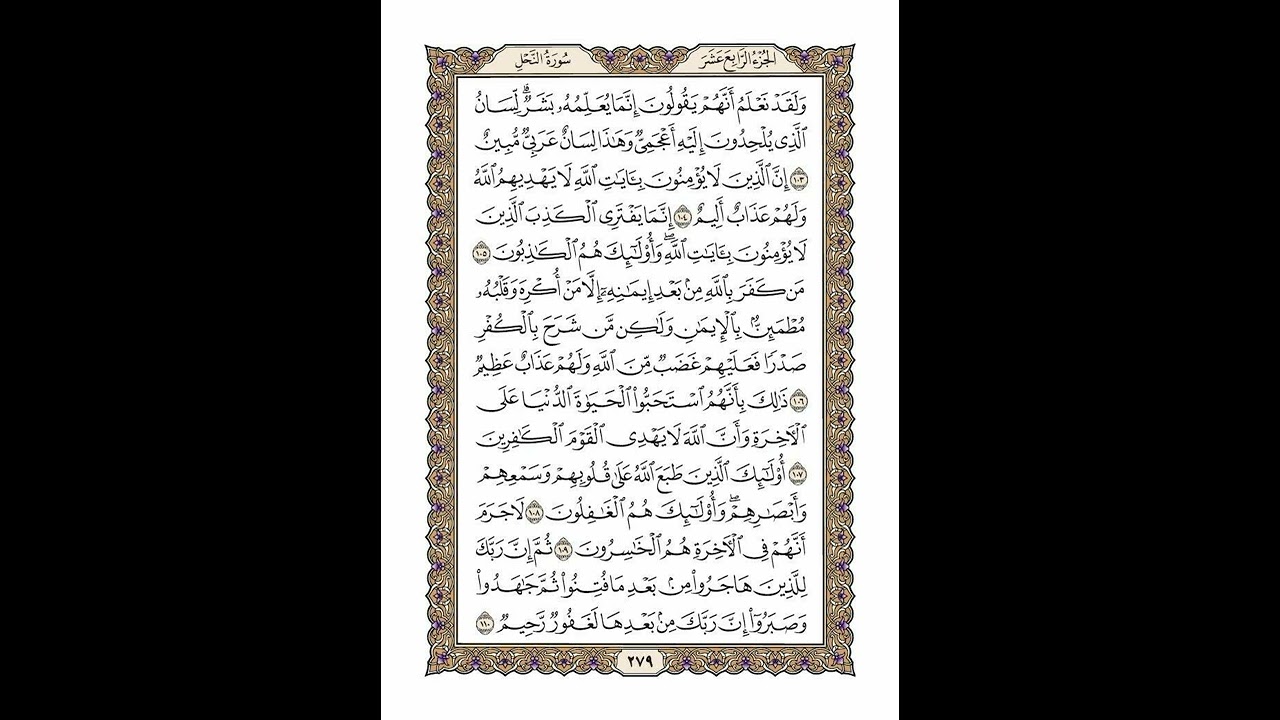 الجُزْءُ الرَّابِعَ عَشَرَ
سُورَةُ النَّحْلِ
وَلَقَدْ نَعْلَمُ أَنَّهُمْ يَقُولُونَ إِنَّمَا يُعَلِّمُهُۥ بَشَرٌ ۗ لِّسَانُ
ٱلَّذِى يُلْحِدُونَ إِلَيْهِ أَعْجَمِىٌّ وَهَٰذَا لِسَانٌ عَرَبِىٌّ مُّبِينٌ
١٠٣ إِنَّ ٱلَّذِينَ لَا يُؤْمِنُونَ بِـَٔايَٰتِ ٱللَّهِ لَا يَهْدِيهِمُ ٱللَّهُ
وَلَهُمْ عَذَابٌ أَلِيمٌ ١٠٤ إِنَّمَا يَفْتَرِى ٱلْكَذِبَ ٱلَّذِينَ
لَا يُؤْمِنُونَ بِـَٔايَٰتِ ٱللَّهِ ۖ وَأُو۟لَٰٓئِكَ هُمُ ٱلْكَٰذِبُونَ ١٠٥
مَن كَفَرَ بِٱللَّهِ مِنۢ بَعْدِ إِيمَٰنِهِۦٓ إِلَّا مَنْ أُكْرِهَ وَقَلْبُهُۥ
مُطْمَئِنٌّۢ بِٱلْإِيمَٰنِ وَلَٰكِن مَّن شَرَحَ بِٱلْكُفْرِ
صَدْرًا فَعَلَيْهِمْ غَضَبٌ مِّنَ ٱللَّهِ وَلَهُمْ عَذَابٌ عَظِيمٌ
١٠٦ ذَٰلِكَ بِأَنَّهُمُ ٱسْتَحَبُّوا۟ ٱلْحَيَوٰةَ ٱلدُّنْيَا عَلَى
ٱلْءَاخِرَةِ وَأَنَّ ٱللَّهَ لَا يَهْدِى ٱلْقَوْمَ ٱلْكَٰفِرِينَ
١٠٧ أُو۟لَٰٓئِكَ ٱلَّذِينَ طَبَعَ ٱللَّهُ عَلَىٰ قُلُوبِهِمْ وَسَمْعِهِمْ
وَأَبْصَٰرِهِمْ ۖ وَأُو۟لَٰٓئِكَ هُمُ ٱلْغَٰفِلُونَ ١٠٨ لَا جَرَمَ
أَنَّهُمْ فِى ٱلْءَاخِرَةِ هُمُ ٱلْخَٰسِرُونَ ١٠٩ ثُمَّ إِنَّ رَبَّكَ
لِلَّذِينَ هَاجَرُوا۟ مِنۢ بَعْدِ مَا فُتِنُوا۟ ثُمَّ جَٰهَدُوا۟
وَصَبَرُوٓا۟ إِنَّ رَبَّكَ مِنۢ بَعْدِهَا لَغَفُورٌ رَّحِيمٌ ١١٠
٢٧٩